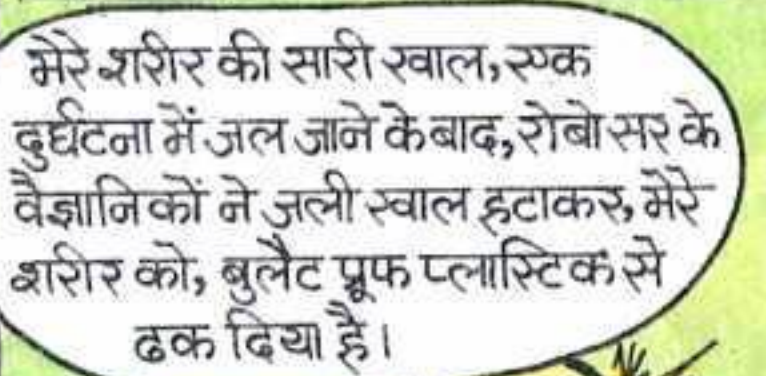 मेरे शरीर की सारी खाल, एक
दुर्घटना में जल जाने के बाद, रोबो सर के
वैज्ञानिकों ने जली खाल हटाकर, मेरे
शरीर को, बुलैट प्रूफ प्लास्टिक से
ढक दिया है।